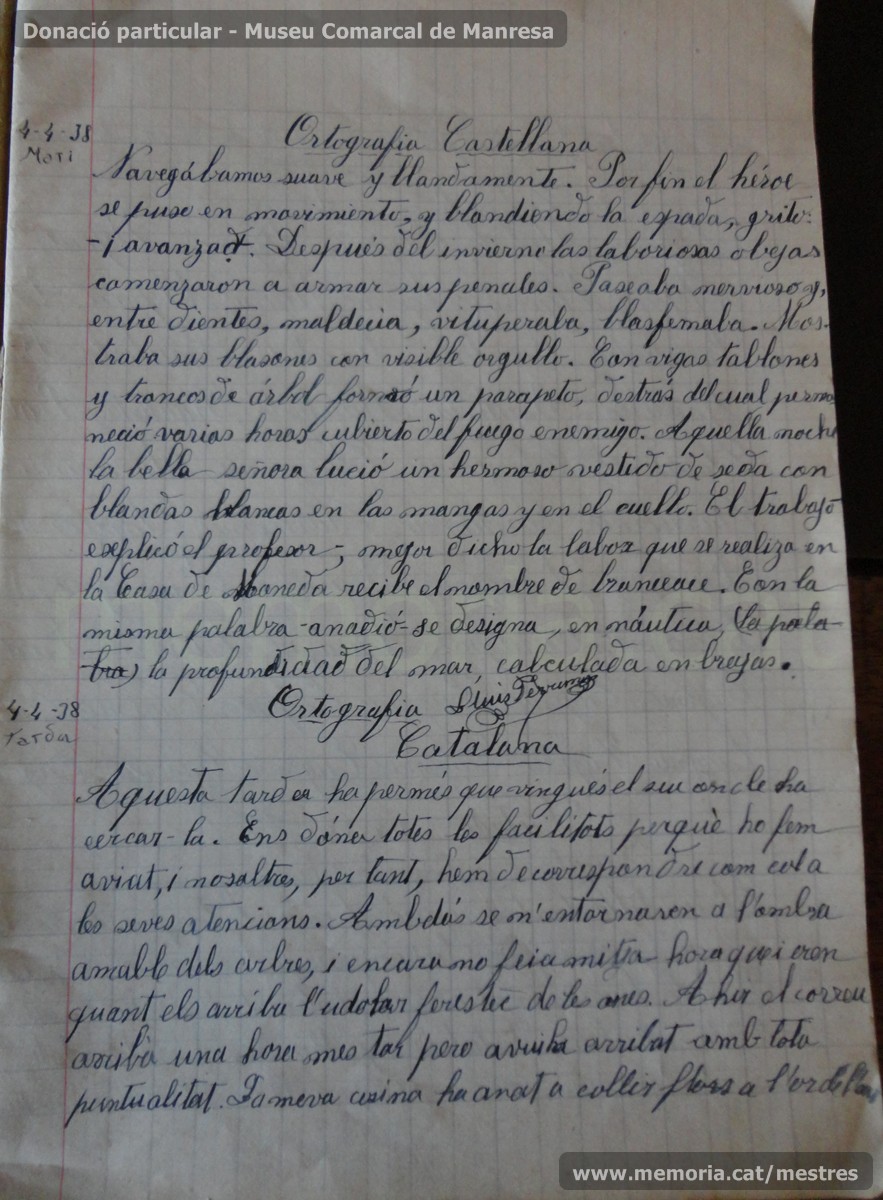 Donació particular - Museu Comarcal de Manresa
4-4-38
Matí
Ortografia Castellana
Navegábamos suave y blandamente. Por fin el héroe
se puso en movimiento, y blandiendo la espada, grito:
-¡avanzad. Después del invierno las laboriosas obejas
comenzaron a armar sus penales. Paseaba nervioso y,
entre dientes, maldecia, vituperaba, blasfemaba. Mos-
traba sus blasones con visible orgullo. Con vigas tablones
y troncos de árbol formó un parapeto, destrás del cual perma
neció varias horas cubierto del fuego enemigo. Aquella noche
la bella señora lució un hermoso vestido de seda con
blandas blancas en las mangas y en el cuello. El trabajo
explicó el profesor-, mejor dicho la labor que se realiza en
la Casa de Moneda recibe el nombre de
Con la
misma palabra -anadió- se designa, en náutica, (la pala-
bra) la profundidad del mar, calculada en brajas.
4-4-38
Tarda
Ortografia
Catalana
Aquesta tarda ha permés que vingués el seu oncle ha
cercar-la. Ens dóna totes les facilitats perquè ho fem
aviat, i nosaltres, per tant, hem de correspondre com cal a
les seves atencions. Ambdós se n'entornaren a l'ombra
amable dels arbres, i encara no feia mitja hora que i eren
quant els arriba l'udolar ferestec de les
Ahir el correu
arribà una hora mes tar pero avui ha arribat amb tota
puntualitat. La meva cosina ha anat a collir flors a l'
www.memoria.cat/mestres